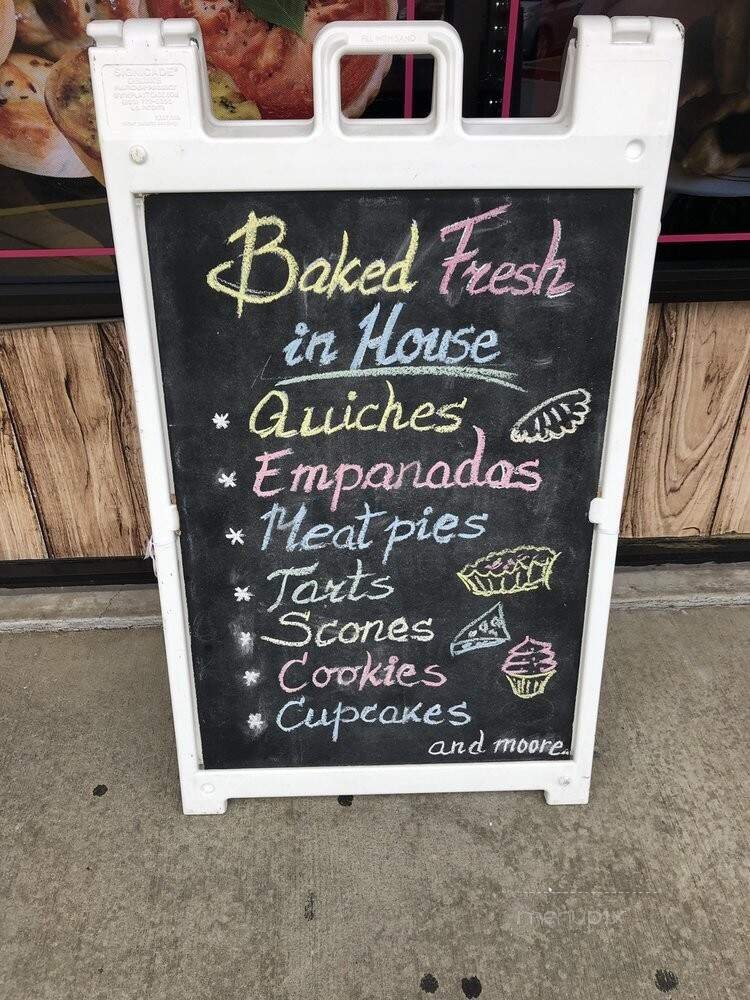 FILL WITH SAND
SIGNICADE®
Baked Fresh
in House
* Quiches
* Empanadas
* Meat pies
* Tarts
* Scones
* Cookies
* Cupcakes
and moore.
menupix